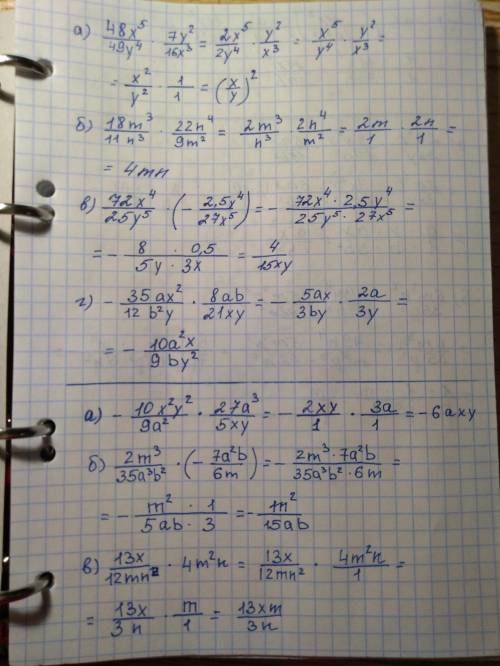 а) 48x⁵/49y⁴ · 7y²/16x³ = 2x⁵/2y⁴ · y²/x³ = x⁵/y⁴ · y²/x³ =
= x²/y² · 1/1 = (x/y)²
б) 18m³/11n³ · 22n⁴/9m² = 2m³/n³ · 2n⁴/m² = 2m/1 · 2n/1 =
= 4mn
в) 72x⁴/25y⁵ · (− 2,5y⁴/27x⁵) = − 72x⁴ · 2,5y⁴/25y⁵ · 27x⁵ =
= − 8 · 0,5/5y · 3x = 4/15xy
г) − 35ax²/12b²y · 8ab/21xy = − 5ax/3by · 2a/3y =
= − 10a²x/9by²
а) − 10x²y²/9a² · 27a³/5xy = − 2xy/1 · 3a/1 = −6axy
б) 2m³/35a³b² · (− 7a²b/6m) = − 2m³ · 7a²b/35a³b² · 6m =
= − m² · 1/5ab · 3 = − m²/15ab
в) 13x/12mn² · 4m²n = 13x/12mn² · 4m²n/1 =
= 13x/3n · m/1 = 13xm/3n